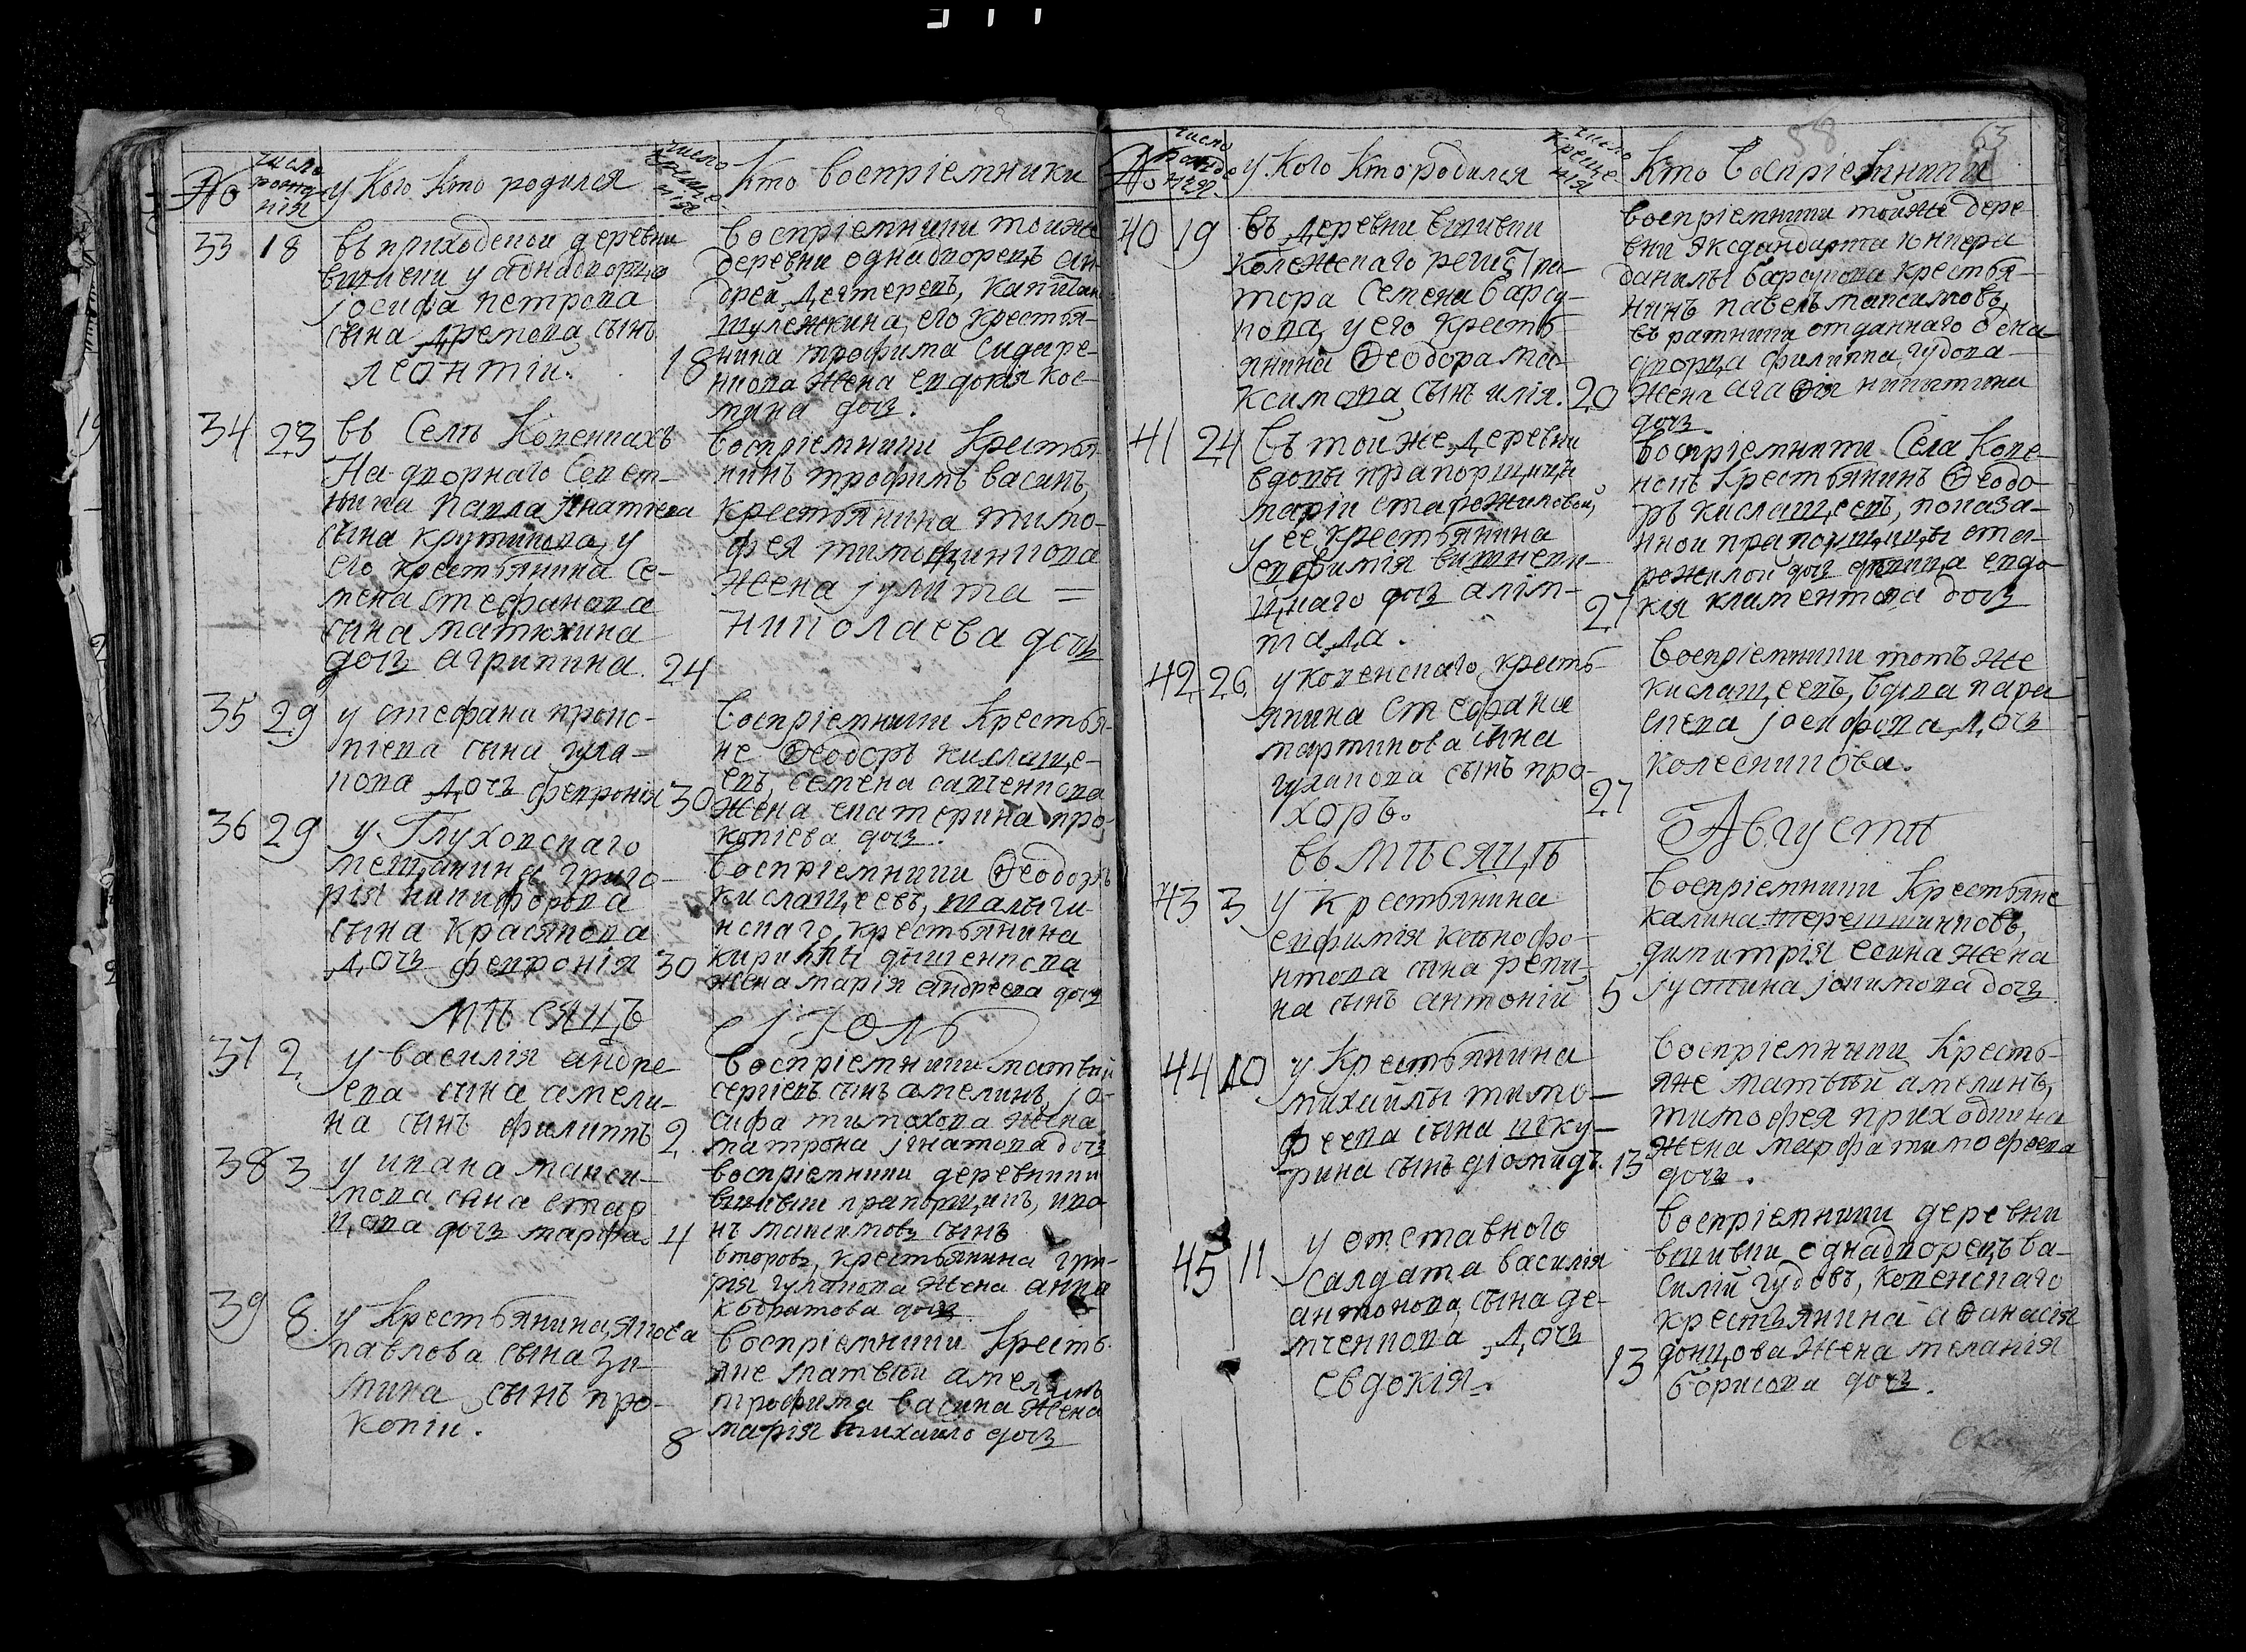 No
число рожде нія
у Кого кто родился
число креще нія
Кто воспріемники
33 18
въ приходской деревни
вшивки у аднадворца
іосифа петрова
сына сынъ
леонтій. 18
воспріемники тойже
деревни однадворецъ ан-
дрей Дехтеревъ, капитан
шулежкина, его крестья-
нина трофима сидаре-
нкова жена евдокія кос-
мина дочь.
34 23
въ Селѣ Копенкахъ
На-дворнаго Совет-
ника Павла
сына крутикова, у
его крестьянина се-
мена стефанова
сына матюхина
дочь агрипина. 24
воспріемники Крестья
нинъ трофимъ васинъ,
крестьянина тимо-
фея
жена іулита =
николаева дочь
35 29
у стефана проко-
піева сына гула-
кова дочь феврониія 30
воспріемники Крестья-
не Ѳеодоръ кислаще-
евъ, семена савченкова
жена екатерина про-
копіева дочь.
36 29
у Глуховскаго
мещанина григо-
рія никифорова
сына Красякова
дочь февронія 30
воспріемники Ѳеодоръ
кислащеевъ, шалыги-
нскаго крестьянина
кириллы
жена марія андреева дочь
мѣсяцъ
Іюль
37 2
у василія андре-
ева сына амели-
на сынъ филиппъ 2
воспріемники матвій
сергіевъ сынъ амелинъ, іо-
сифа тимохова жена
матрона игнатова дочь
38 3
у ивана макси-
мова сына стар
цова дочь марфа. 4
воспріемники деревники
вшивки прапорщикъ, ива
нъ максимовъ сынъ
второвъ, крестьянина гри-
рія гулакова жена анна
кодратова дочь
39 8.
у Крестьянина, якова
павлова сына зи-
мина сынъ про-
копій. 8
воспріемники кресть-
яне матвѣй амелинъ
трофима васина жена
марія михайло дочь
58 63
No
число рожде нія
у Кого Кто родился
число креще нія
Кто Воспріемники
40 19
въ Деревни вшивки
колежскаго регист/ра-
тора Семена барсу-
кова, у его крестъ
янина Ѳеодора ма-
ксимова, сынъ илія. 20
воспріемники тойже дере
вни Эксдандарта юнкера
данилы барсукова крестья-
нинъ павелъ максимовъ,
въ ратники отданнаго одна-
дворца филиппа гудова-
жена агаѳія никитина
дочь.
41 24
въ той же Деревни
вдовы прапорщицы
маріи старожиловой,
у ее Крестьянина
евфимія
цнаго дочь алім-
піада. 27
воспріемники Села Копе-
нокъ Крестьянинъ Ѳеодо-
ръ кислащеевъ, показа-
нной прапорщицы ста-
рожилой дочь девица евдо-
кія климентова дочь
42 26
у копенскаго кресть-
янина стефана
мартинова сына
гулакова сынъ про-
хоръ. 27
Воспріемники тотъ же
кислащеевъ, вдова пара
скева іосифова, дочь
колесникова.
въ мѣсяцѣ
Августѣ
43 3
у крестьянина
евфимія
нтова сына репи-
на сынъ антоній 5
Воспріемники Крестьяне
калина терешинковъ,
димитрія есина жена
іустина іокимова дочь
44 10
у Крестьянина
михайлы тимо-
феева сына шку-
рина сынъ діомидъ. 13
Воспріемники Кресть-
яне матвѣй амелинъ,
тимофея приходкина
жена марфа тимофеева
дочь.
45 11
у отставного
салдата василія
антонова, сына де-
мченкова дочь
евдокія. 13
воспріемники деревни
вшивки однадворецъ ва-
силій гудовъ, копенскаго
крестьянина аѳанасія
донцова жена меланія
борисова дочь.